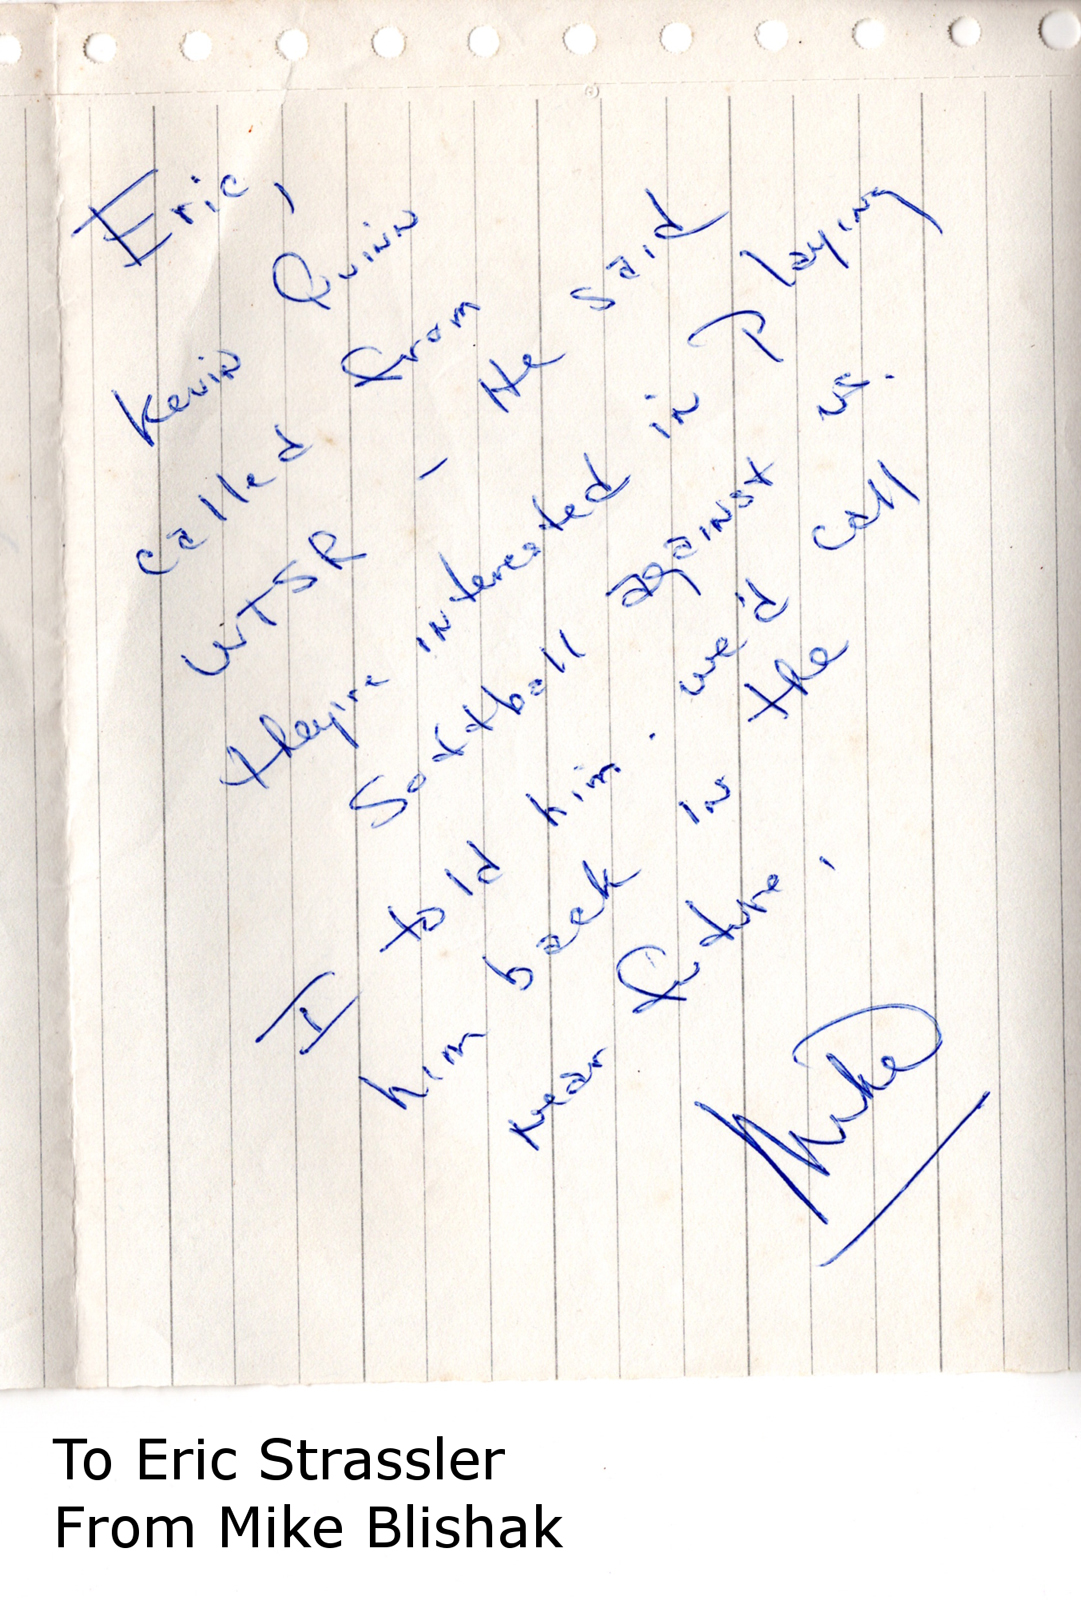 Eric,
Kevin Quinn
called from
WTSR - He said
they're interested in playing
Softball against us.
I told him we'd call
him back in the
near future.
Mike
To Eric Strassler
From Mike Blishak